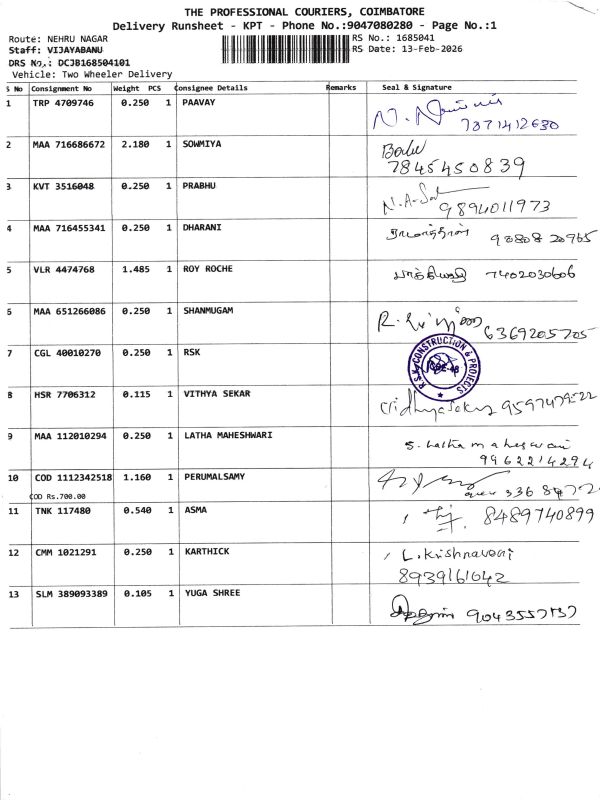 THE PROFESSIONAL COURIERS, COIMBATORE
Delivery Runsheet - KPT - Phone No.:9047080280 - Page No.:1
Route: NEHRU NAGAR RS No.: 1685041
Staff: VIJAYABANU RS Date: 13-Feb-2026
DRS No.: DCJB168504101
Vehicle: Two Wheeler Delivery
S No Consignment No Weight PCS Consignee Details Remarks Seal & Signature
1 TRP 4709746 0.250 1 PAAVAY
7871412630
2 MAA 716686672 2.180 1 SOWMIYA
7845450839
3 KVT 3516048 0.250 1 PRABHU
9894011973
4 MAA 716455341 0.250 1 DHARANI
90808 20965
5 VLR 4474768 1.485 1 ROY ROCHE 7402030606
6 MAA 651266086 0.250 1 SHANMUGAM
6369205705
7 CGL 40010270 0.250 1 RSK R.S.K CONSTRUCTION & PROJECTS
8 HSR 7706312 0.115 1 VITHYA SEKAR
9 MAA 112010294 0.250 1 LATHA MAHESHWARI S. Latha maheswari
9962214294
10 COD 1112342518 1.160 1 PERUMALSAMY
COD Rs.700.00
11 TNK 117480 0.540 1 ASMA 8489740899
12 CMM 1021291 0.250 1 KARTHICK L. Krishnaveni
8939161042
13 SLM 389093389 0.105 1 YUGA SHREE